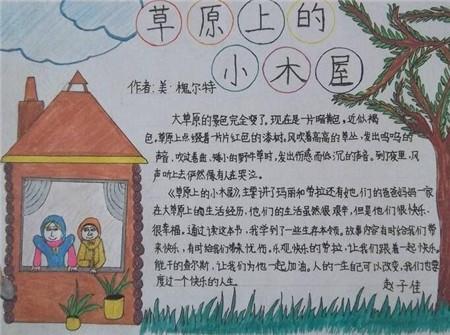 草原上的
小木屋
作者:美·槐尔特
大草原的景色完全变了,现在是一片暗黄色,近似褐
色,草原上点缀着一片片红色的漆树。风吹着高高的草丛,发出呜呜的
声音,吹过卷曲、矮小的野牛草时,发出伤感而低沉的声音。到夜里,风
声听上去俨然像有人在哭泣。
《草原上的小木屋》主要讲了玛丽和劳拉还有她们的爸爸妈妈一家
在大草原上的生活经历,他们的生活虽然很艰辛,但是他们很快乐、
很幸福。通过读这本书,我学到了一些生存本领。故事内容有时给我们带
来快乐,有时给我们带来忧伤。乐观快乐的劳拉,让我们跟着一起快乐。
能干的查尔斯,让我们为他一起加油。人的一生自己可以改变,我们也要
度过一个快乐的人生。
赵子佳